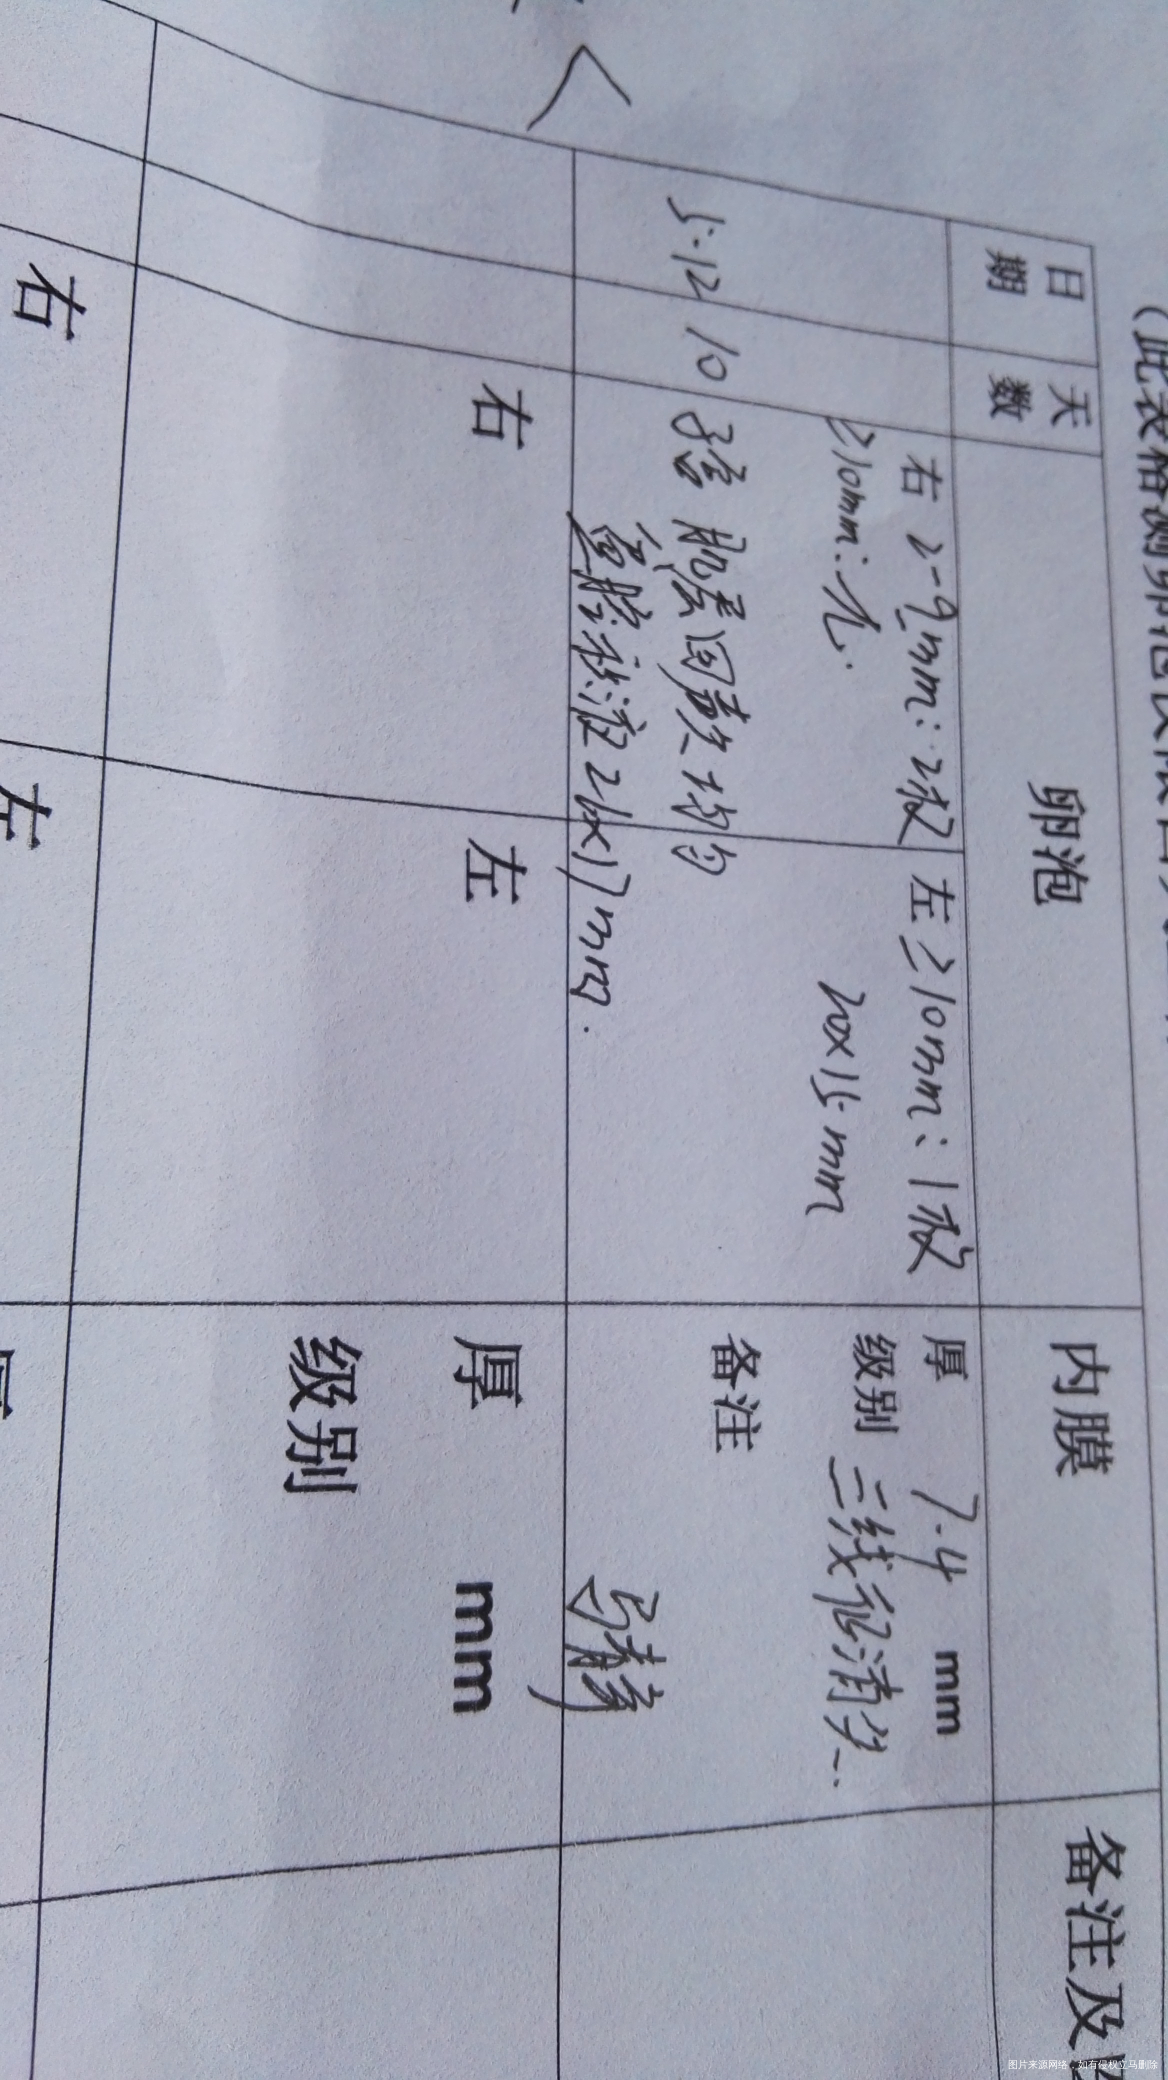 日期 天数 卵泡 内膜 备注及
5.12 10 右 2-9mm:2枚 左≥10mm:1枚 厚 7.4 mm
≥10mm:无. 20x15mm 级别 三线征消失.
子宫 肌层回声欠均匀 备注
盆腔积液 26x17mm.
右 左 厚 mm
级别
右 左
图片来源网络,如有侵权立马删除